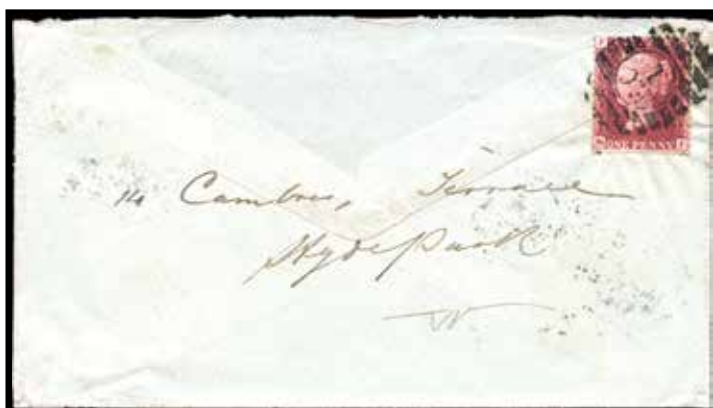 ONE PENNY
14 Cambri, Terrace
Hyde Park
W